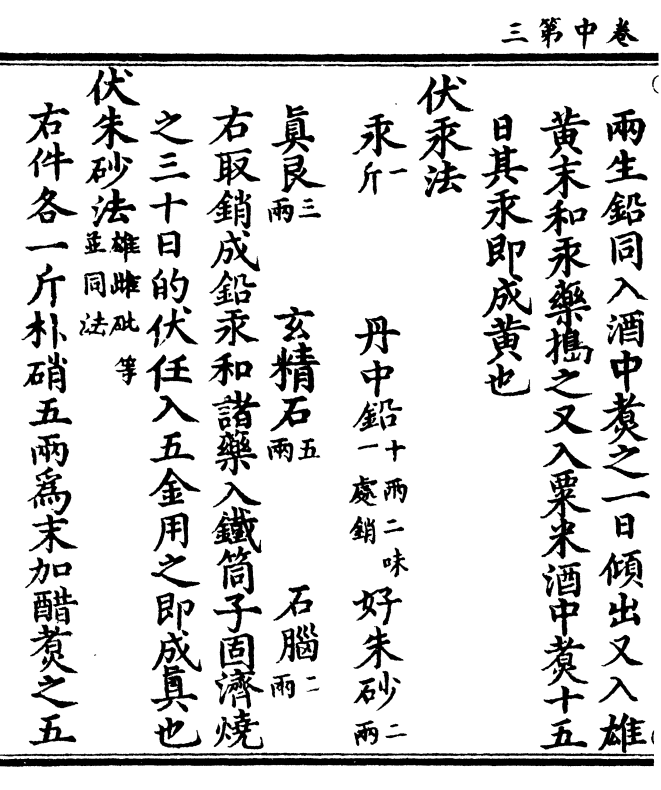 三第中卷
兩生鉛同入酒中煑之一日傾出又入雄
黃末和汞藥搗之又入粟米酒中煑十五
日其汞即成黃也
伏汞法
汞一斤 丹中鉛十兩二味一處銷 好朱砂二兩
眞艮三兩 玄精石五兩 石腦二兩
右取銷成鉛汞和諸藥入鐵筒子固濟燒
之三十日的伏任入五金用之即成眞也
伏朱砂法雄雌砒等並同法
右件各一斤朴硝五兩爲末加醋煑之五